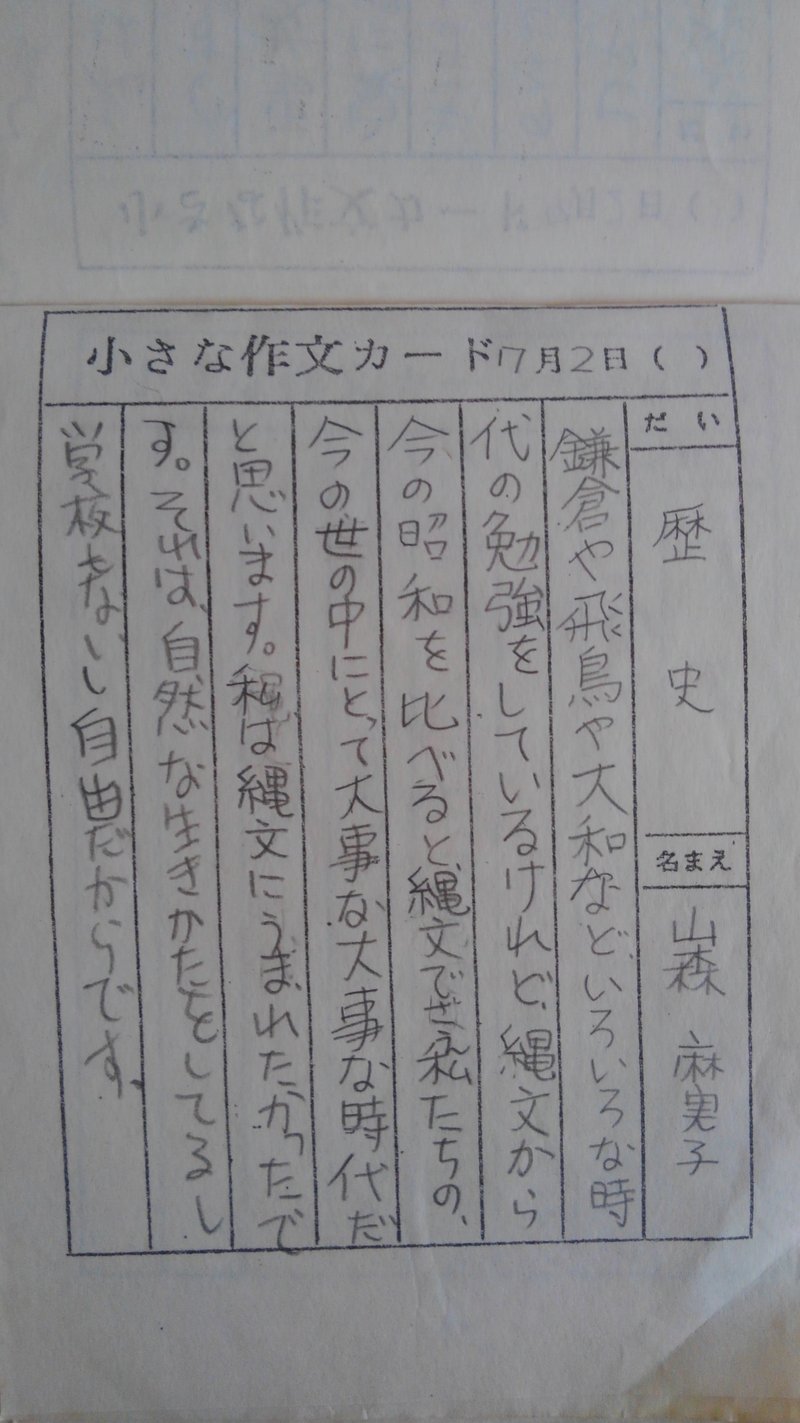 小さな作文カード 7月2日( )
だい
歴史
名まえ
山森 麻実子
鎌倉や飛鳥や大和など、いろいろな時
代の勉強をしているけれど、縄文から
今の昭和を比べると、縄文でさえ私たちの、
今の世の中にとって大事な大事な時代だ
と思います。私は縄文にうまれたかったで
す。それは、自然な生きかたをしてるし
学校もないし自由だからです。